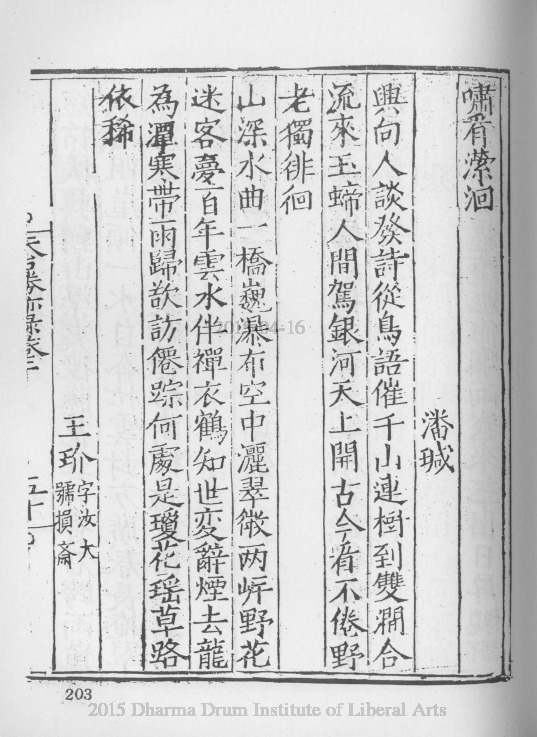 嘯看瀠洄
潘瑊
興向人談發詩從鳥語催千山連樹到雙澗合
流來玉人間駕銀河天上開古今看不倦野
老獨徘徊
山深水曲一橋巍瀑布空中灑翠微两岸野花
迷客夢百年雲水伴禪衣鶴知世変辭煙去龍
為潭寒帶雨歸欲訪僊踪何處是瓊花瑶草路
依稀
王玠字汝大
號損齋
天台勝跡錄卷 五十一
203
2015 Dharma Drum Institute of Liberal Arts